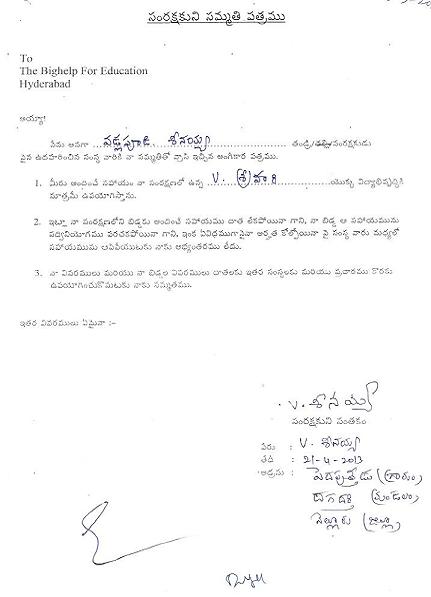 సంరక్షకుని సమ్మతి పత్రము
To
The Bighelp For Education
Hyderabad
అయ్యా!
నేను అనగా వడ్లపూడి శీనయ్య తండ్రి/తల్లి/సంరక్షకుడు
పైన ఉదహరించిన సంస్థ వారికి నా సమ్మతితో వ్రాసి ఇచ్చిన అంగీకార పత్రము.
1. మీరు అందించే సహాయం నా సంరక్షణలో ఉన్న V. శ్రీహరి యొక్క విద్యాభివృద్ధికి
మాత్రమే ఉపయోగిస్తాను.
2. ఇట్లా నా సంరక్షణలోని బిడ్డకు అందించే సహాయము దాత లేకపోయినా గాని, నా బిడ్డ ఆ సహాయమును
సద్వినియోగము పరచకపోయినా గాని, ఇంకే ఏవిధముగానైనా అర్హత కోల్పోయినా పై సంస్థ వారు మధ్యలో
సహాయమును ఆపివేయుటకు నాకు అభ్యంతరము లేదు.
3. నా వివరములు మరియు నా బిడ్డల వివరములు దాతలకు ఇతర సంస్థలకు మరియు ప్రచారము కొరకు
ఉపయోగించుకొనుటకు నాకు సమ్మతము.
ఇతర వివరములు ఏమైనా :-
V. శీనయ్య
సంరక్షకుని సంతకం
పేరు : V. శీనయ్య
తేది : 21-4-2013
అడ్రసు : పెదపుత్తేడు (గ్రామం)
దగదర్తి (మండలం)
నెల్లూరు (జిల్లా)